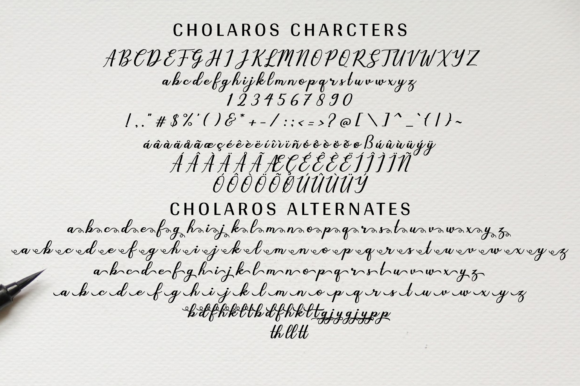 CHOLAROS CHARCTERS
ABCDEFGHIJKLMNOPQRSTUVWXYZ
abcdefghijklmnopqrstuvwxyz
1234567890
!,."#$%'()&*+-/:;<=>?@[\]^_`{|}~
áâäàåãæçéêëèíîïìñóôöòõøßúûüùÿý
ÁÂÄÀÅÃÆÇÉÊËÈÍÎÏÌÑ
ÓÔÖÒÕØÚÛÜÙÝ
CHOLAROS ALTERNATES
abcdefghijklmnopqrstuvwxyz
abcdefghijklmnopqrstuvwxyz
abcdefghijklmnopqrstuvwxyz
abcdefghijklmnopqrstuvwxyz
thlltt